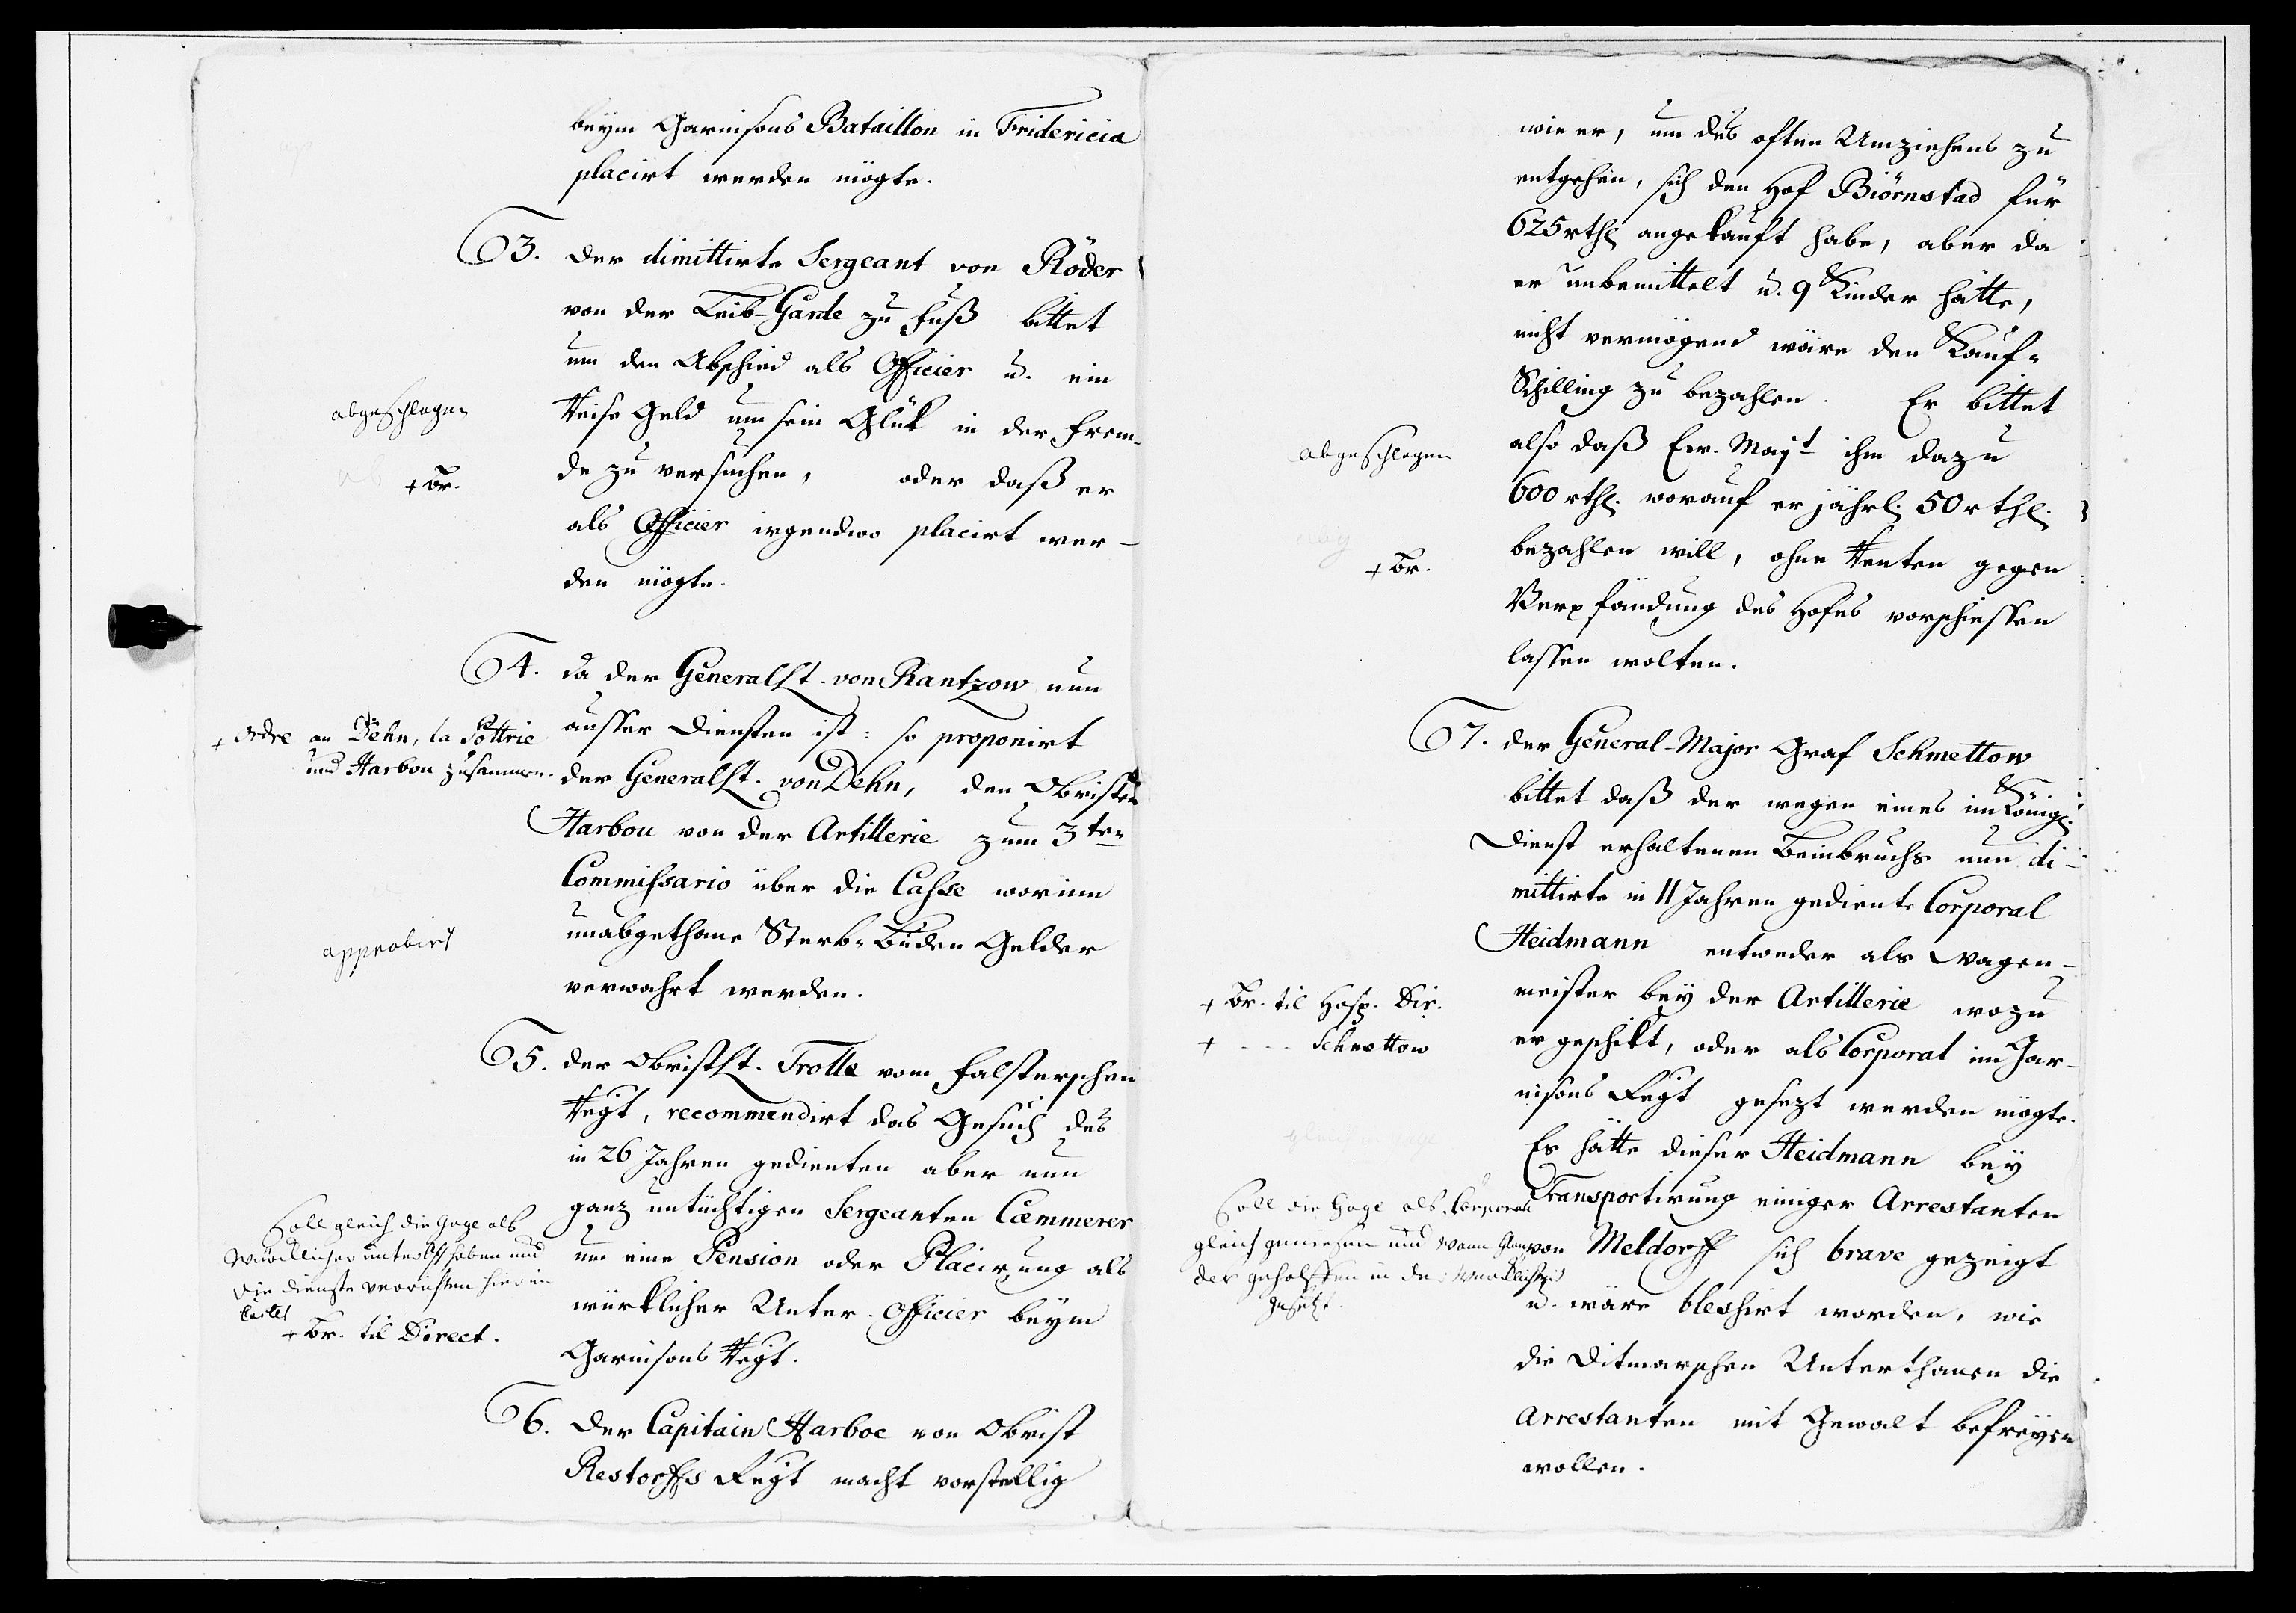 beym Garnisons Bataillon in Fridericia
placirt werden mögte.
3. der dimittirte Sergeant von Röder
von der Leib-Garde zu Fuß bittet
um den Abschied als Officier u. ein
Reise Geld um sein Glük in der Frem-
de zu versuchen, oder daß er
als Officier irgendwo placirt wer-
den mögte.
abgeschlagen
+ Br.
4. da der Generallt. von Rantzow nun
ausser Diensten ist: so proponirt
der Generallt. von Dehn, den Obristen
Harbou von der Artillerie zum 3ten
Commissario über die Casse worinn
unabgethane Sterb-Buden Gelder
verwahrt werden.
+ Ordre an Dehn, la Pottrie
und Harbou zusammen.
approbirt
5. der Obristlt. Trolle vom Falsterschen
Regt, recommendirt das Gesuch des
in 26 Jahren gedienten aber nun
ganz untüchtigen Sergeanten Cæmmerer
um eine Pension oder Placirung als
würklicher Unter-Officier beym
Garnisons Regt.
Soll gleich die Gage als
Würcklicher haben und
die Dienste verrichten hier im
Castel
+ Br. til Direct.
6. Der Capitain Harboe von Obrist
Restorffs Regt macht vorstellig
wie er, um des often Umziehens zu
entgehen, sich den Hof Biörnstad für
625 rthl angekauft habe, aber da
er unbemittelt u. 9 Kinder hätte,
nicht vermögend wäre den Kauf-
Schilling zu bezahlen. Er bittet
also daß Ew. Majt ihm dazu
600 rthl. worauf er jährl. 50 rthl.
bezahlen will, ohne Renten gegen
Verpfändung des Hofes vorschiessen
lassen wolten.
abgeschlagen
+ Br.
7. der General-Major Graf Schmettow
bittet daß der wegen eines im Königl.
Dienst erhaltenen Beinbruchs nun di-
mittirte in 11 Jahren gediente Corporal
Heidmann entweder als Wagen-
meister bey der Artillerie wozu
er geschikt, oder als Corporal im Gar-
nisons Regt gesezt werden mögte.
Es hätte dieser Heidmann bey
Transportirung einiger Arrestanten
von Meldorff sich brave gezeigt
u. wäre blessirt worden, wie
die Ditmarschen Unterthanen die
Arrestanten mit Gewalt befreyen
wollen.
+ Br. til Hosp. Dir.
+ - - - Schmettow
Soll die Gage als Corporal
gleich geniesen und wann
der in der
gesetzt.